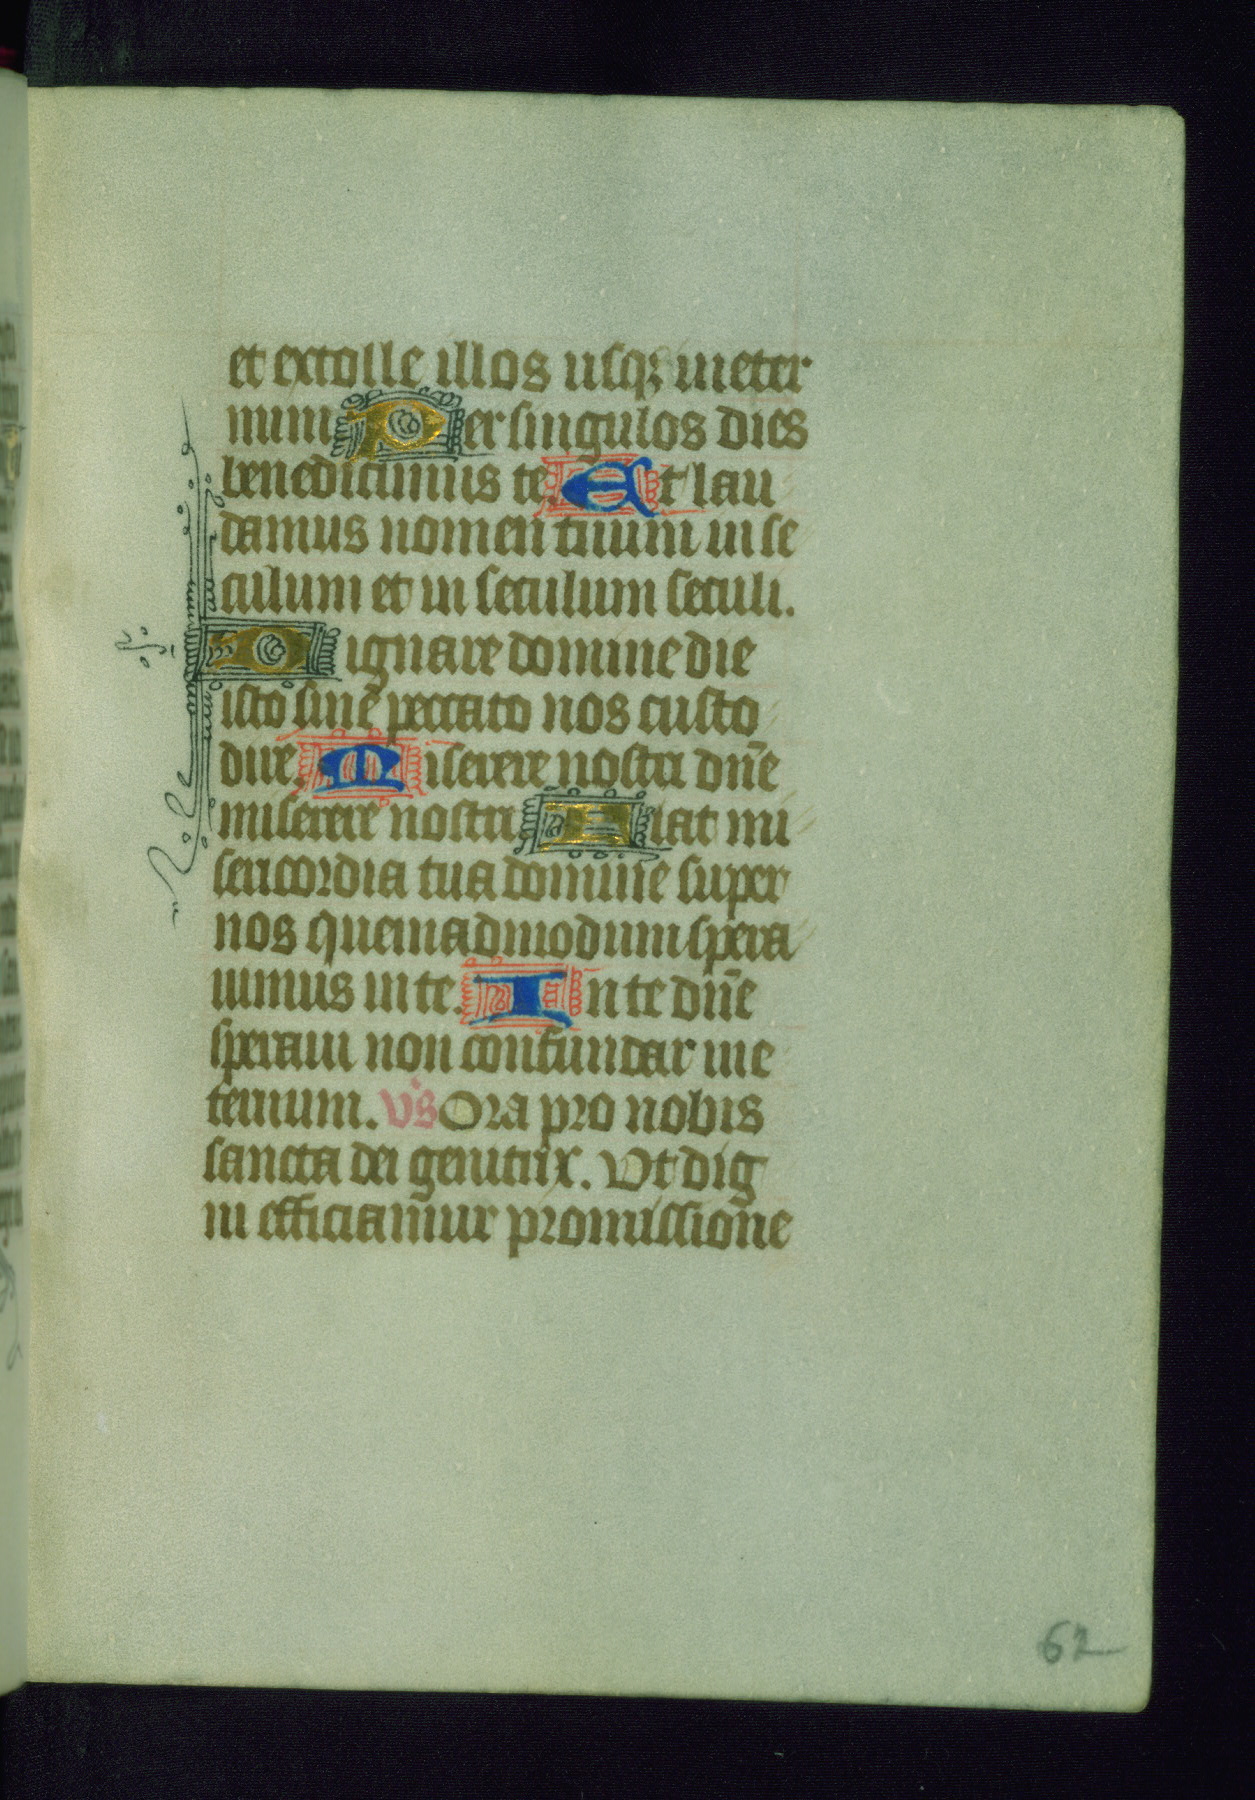 et extolle illos usq; in eter
num Per singulos dies
benedicimus te. Et lau
damus nomen tuum in se
culum et in seculum seculi.
Dignare domine die
isto sine peccato nos custo
dire. Miserere nostri dn̄e
miserere nostri. Fiat mi
sericordia tua domine super
nos quemadmodum spera
uimus in te. In te dn̄e
speraui non confundar in e
ternum. Vs Ora pro nobis
sancta dei genitrix. Vt dig
ni efficiamur promissione
62